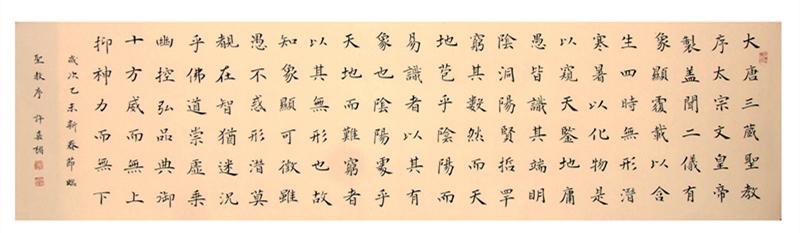 大唐三藏聖教
序太宗文皇帝
製蓋聞二儀有
象顯覆載以含
生四時無形潛
寒暑以化物是
以窺天鑒地庸
愚皆識其端明
陰洞陽賢哲罕
窮其數然而天
地苞乎陰陽而
易識者以其有
象也陰陽處乎
天地而難窮者
以其無形也故
知象顯可徵雖
愚不惑形潛莫
覩在智猶迷況
乎佛道崇虛乗
幽控弘品典御
十方威而無上
抑神力而無下
歲次乙未新春節臨
聖教序 許